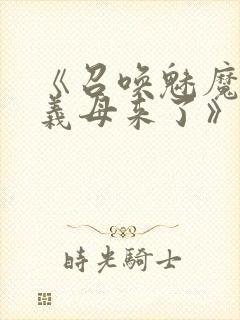 《召唤魅魔
義母来了》
時光騎士